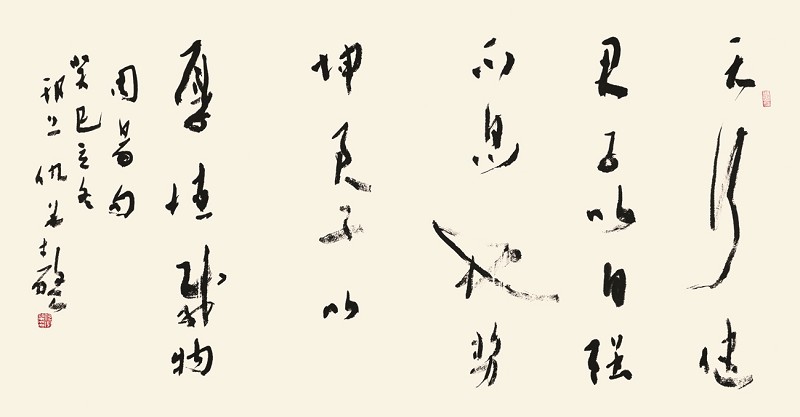 天行健
君子以自强
不息地势
坤君子以
厚德载物
周易句
癸巳立冬